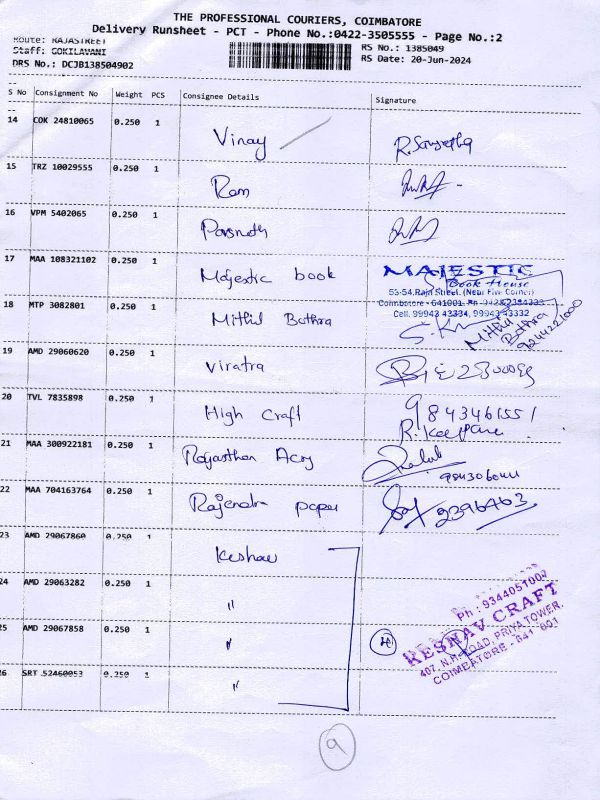 THE PROFESSIONAL COURIERS, COIMBATORE
Delivery Runsheet - PCT - Phone No.:0422-3505555 - Page No.:2
Route: RAJASTREET
Staff: GOKILAVANI
DRS No.: DCJB138504902
RS No.: 1385049
RS Date: 20-Jun-2024
S No Consignment No Weight PCS Consignee Details Signature
14 COK 24810065 0.250 1 Vinay R. Sangeetha
15 TRZ 10029555 0.250 1 Ram
16 VPM 5402065 0.250 1 Parsnath
17 MAA 108321102 0.250 1 Majestic book
MAJESTIC
Book House
53-54, Raja Street, (Near Five Corner)
Coimbatore - 641001. Ph
Cell: 99943 43334, 99943 43332
18 MTP 3082801 0.250 1 Mithil Bothra
Mithil
Bothra
9244221000
19 AMD 29060620 0.250 1 Viratra
20 TVL 7835898 0.250 1 High Craft 9843461551
R. Kalpana
21 MAA 300922181 0.250 1 Rajasthan Acry
22 MAA 704163764 0.250 1 Rajendra paper 2396463
23 AMD 29067860 0.250 1 Keshav
24 AMD 29063282 0.250 1 "
25 AMD 29067858 0.250 1 "
26 SRT 52460053 0.250 1 "
Ph : 9344051009
RESNAV CRAFT
407, N.H. ROAD, PRIYA TOWER,
COIMBATORE - 641 001
9